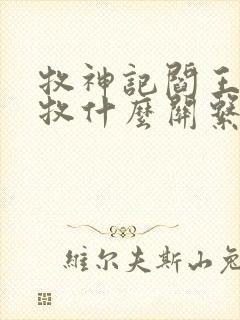 牧神記閻王
牧什麼關繫
維尔夫斯山兔